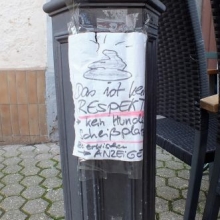 Das ist kein
RESPEKT
kein Hunde
Scheißplatz
Bei erwischen
ANZEIGE